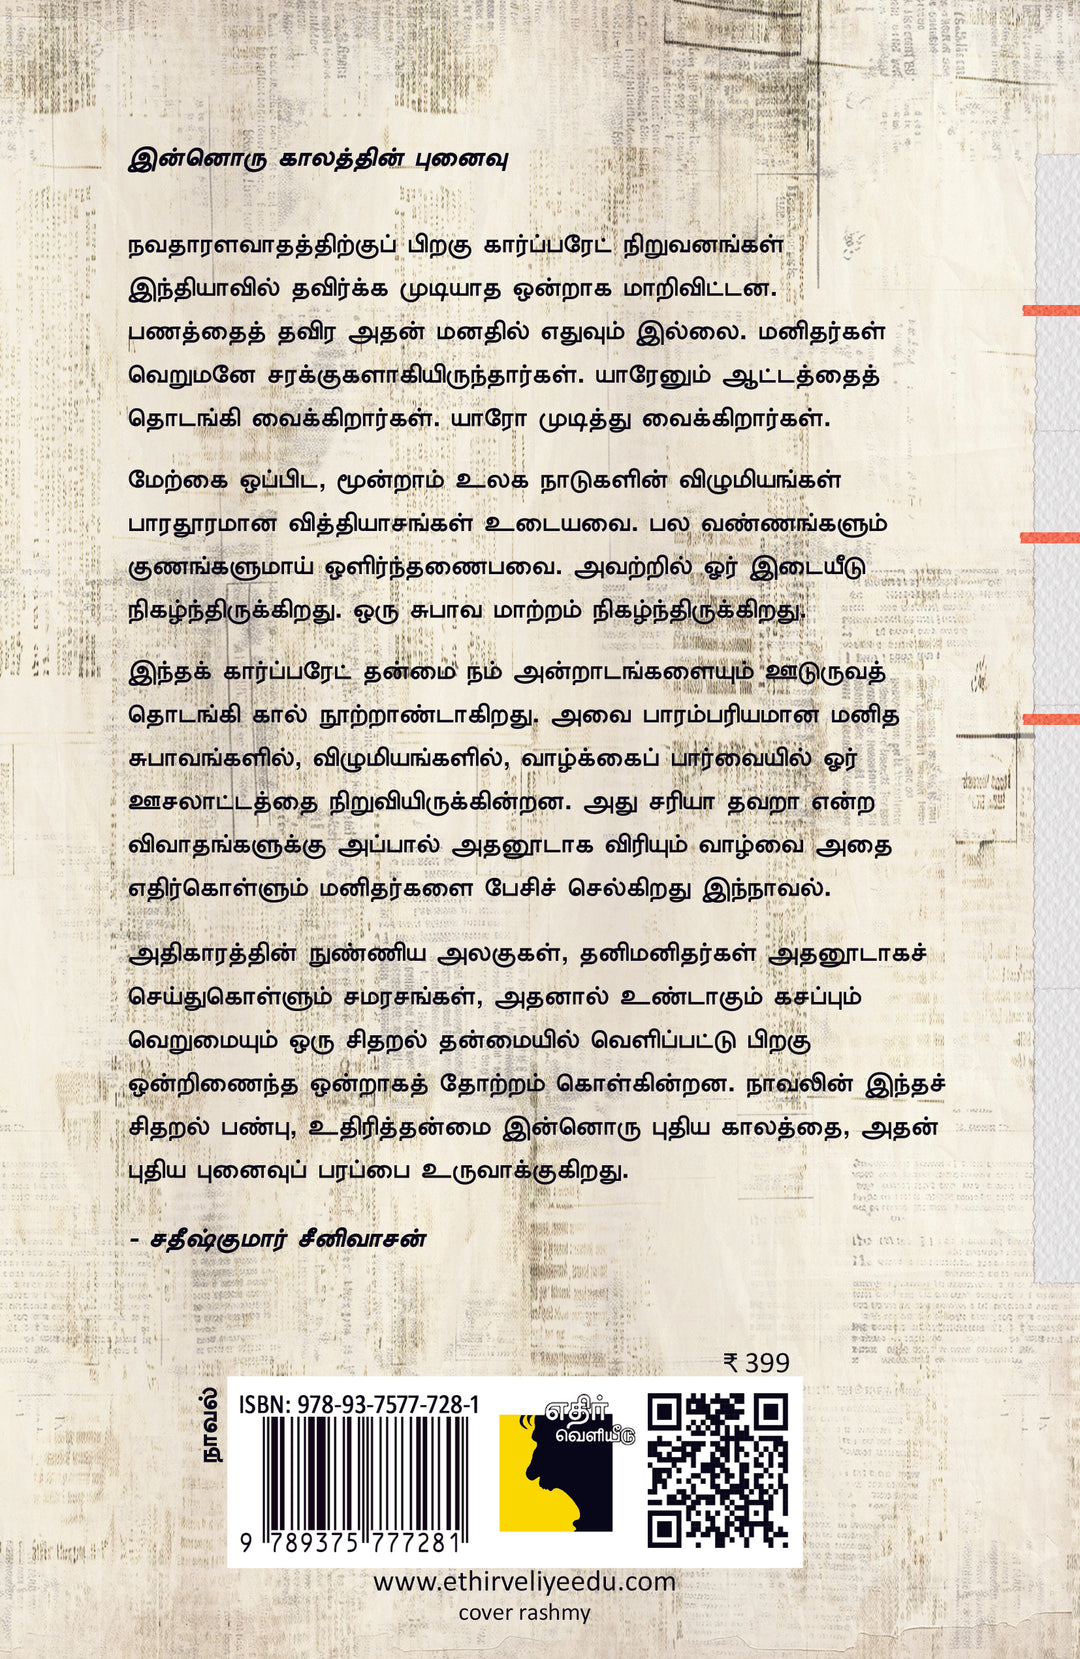 இன்னொரு காலத்தின் புனைவு
நவதாரளவாதத்திற்குப் பிறகு கார்ப்பரேட் நிறுவனங்கள்
இந்தியாவில் தவிர்க்க முடியாத ஒன்றாக மாறிவிட்டன.
பணத்தைத் தவிர அதன் மனதில் எதுவும் இல்லை. மனிதர்கள்
வெறுமனே சரக்குகளாகியிருந்தார்கள். யாரேனும் ஆட்டத்தைத்
தொடங்கி வைக்கிறார்கள். யாரோ முடித்து வைக்கிறார்கள்.
மேற்கை ஒப்பிட, மூன்றாம் உலக நாடுகளின் விழுமியங்கள்
பாரதூரமான வித்தியாசங்கள் உடையவை. பல வண்ணங்களும்
குணங்களுமாய் ஒளிர்ந்தணைபவை. அவற்றில் ஓர் இடையீடு
நிகழ்ந்திருக்கிறது. ஒரு சுபாவ மாற்றம் நிகழ்ந்திருக்கிறது.
இந்தக் கார்ப்பரேட் தன்மை நம் அன்றாடங்களையும் ஊடுருவத்
தொடங்கி கால் நூற்றாண்டாகிறது. அவை பாரம்பரியமான மனித
சுபாவங்களில், விழுமியங்களில், வாழ்க்கைப் பார்வையில் ஓர்
ஊசலாட்டத்தை நிறுவியிருக்கின்றன. அது சரியா தவறா என்ற
விவாதங்களுக்கு அப்பால் அதனூடாக விரியும் வாழ்வை அதை
எதிர்கொள்ளும் மனிதர்களை பேசிச் செல்கிறது இந்நாவல்.
அதிகாரத்தின் நுண்ணிய அலகுகள், தனிமனிதர்கள் அதனூடாகச்
செய்துகொள்ளும் சமரசங்கள், அதனால் உண்டாகும் கசப்பும்
வெறுமையும் ஒரு சிதறல் தன்மையில் வெளிப்பட்டு பிறகு
ஒன்றிணைந்த ஒன்றாகத் தோற்றம் கொள்கின்றன. நாவலின் இந்தச்
சிதறல் பண்பு, உதிரித்தன்மை இன்னொரு புதிய காலத்தை, அதன்
புதிய புனைவுப் பரப்பை உருவாக்குகிறது.
- சதீஷ்குமார் சீனிவாசன்
₹ 399
நாவல்
ISBN: 978-93-7577-728-1
எதிர்
வெளியீடு
9 789375 777281
www.ethirveliyeedu.com
cover rashmy